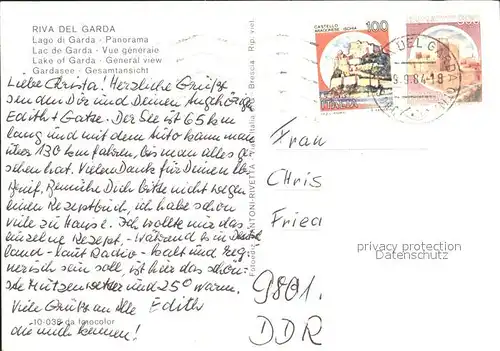 RIVA DEL GARDA
Lago di Garda - Panorama
Lac de Garda - Vue générale
Lake of Garda - General view
Gardasee - Gesamtansicht
Liebe Christa! Herzliche Grüße
senden Dir und Deinen Angehörigen
Edith + Gatze. Der See ist 65 km
lang und mit dem Auto kann man
über 130 km fahren, bis man alles ge-
sehen hat. Vielen Dank für Deinen lb.
Brief. Bemühe Dich bitte nicht wegen
einen Rezeptbuch, ich habe schon
viele zu Hause. Ich wollte nur das
einzelne Rezept. Während es in Deutsch
land - laut Radio - kalt und reg-
nerisch sein soll, ist hier das schön-
ste Mützenwetter und 25° warm.
Viele Grüße an Alle Edith
die mich kennen!
10-036 da fotocolor
Brescia Rip. viet.
CASTELLO
ARAGONESE ISCHIA
100
ITALIA
DEL GARDA
9.9.84-18
Frau
Chris
Fried
9801.
DDR
privacy protection
Datenschutz